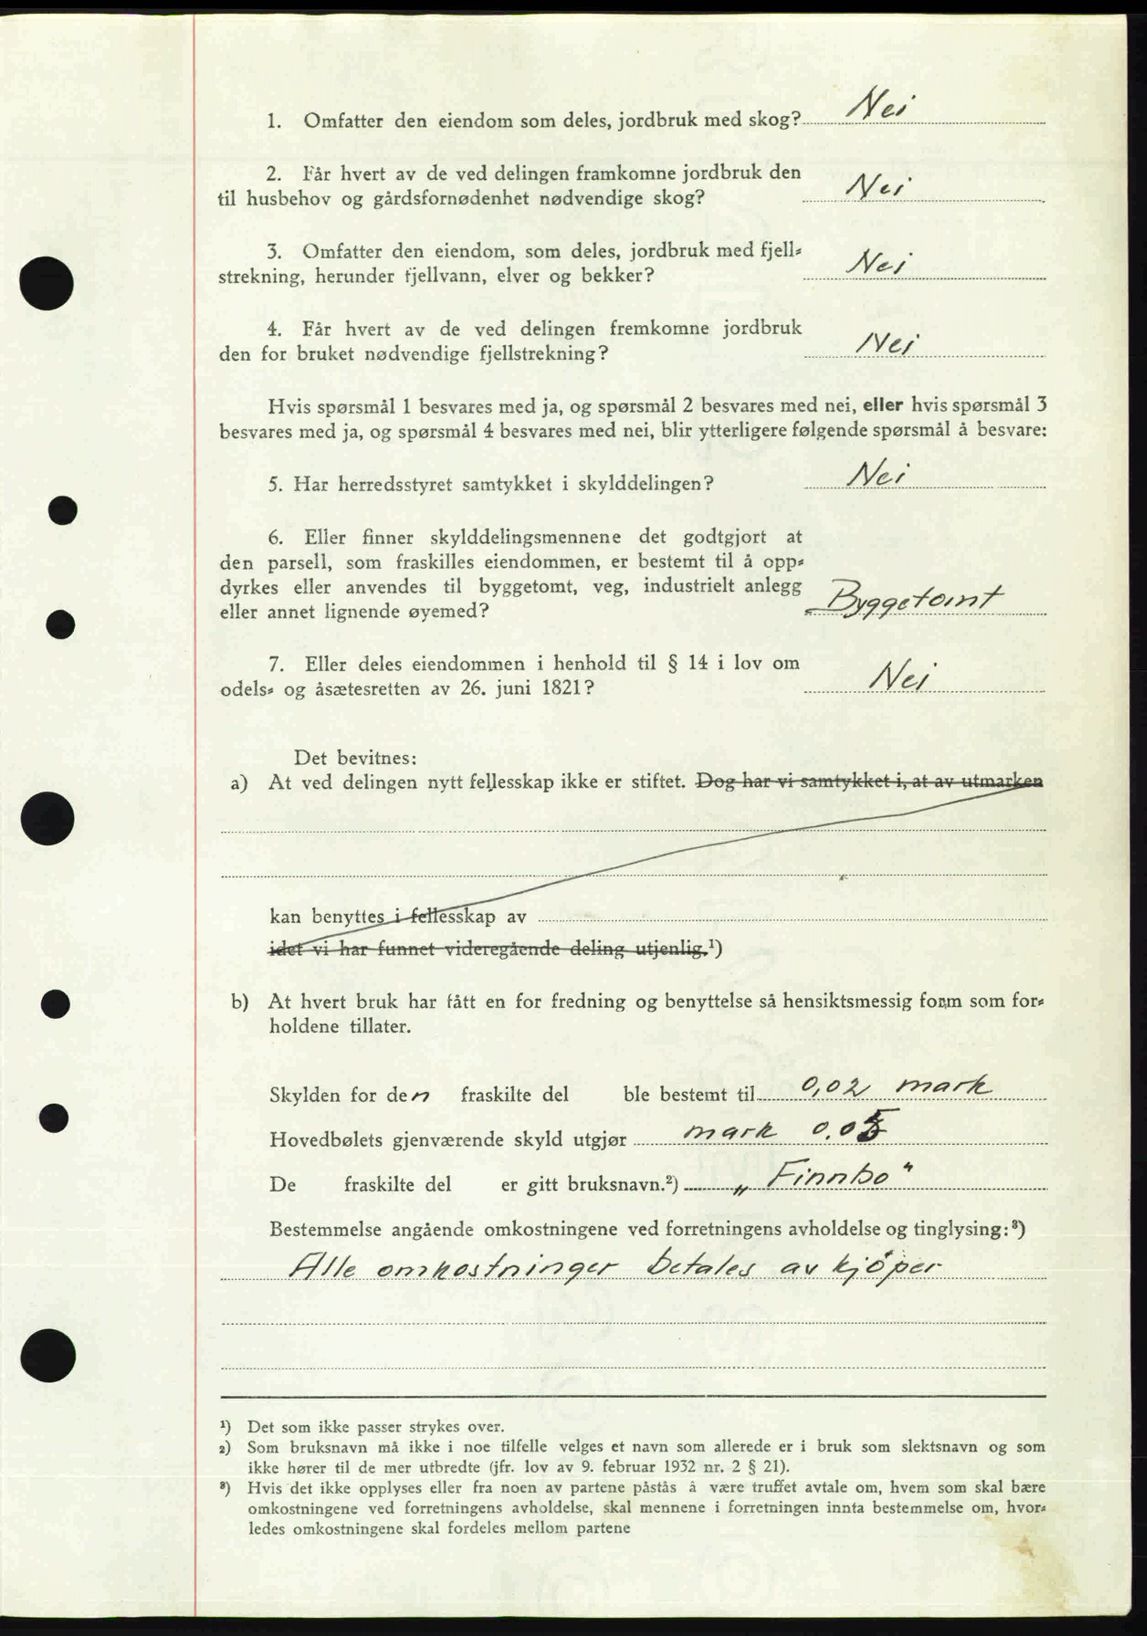 1. Omfatter den eiendom som deles, jordbruk med skog? Nei
2. Får hvert av de ved delingen framkomne jordbruk den
til husbehov og gårdsfornødenhet nødvendige skog? Nei
3. Omfatter den eiendom, som deles, jordbruk med fjell-
strekning, herunder fjellvann, elver og bekker? Nei
4. Får hvert av de ved delingen fremkomne jordbruk
den for bruket nødvendige fjellstrekning? Nei
Hvis spørsmål 1 besvares med ja, og spørsmål 2 besvares med nei, eller hvis spørsmål 3
besvares med ja, og spørsmål 4 besvares med nei, blir ytterligere følgende spørsmål å besvare:
5. Har herredsstyret samtykket i skylddelingen? Nei
6. Eller finner skylddelingsmennene det godtgjort at
den parsell, som fraskilles eiendommen, er bestemt til å opp-
dyrkes eller anvendes til byggetomt, veg, industrielt anlegg
eller annet lignende øyemed? Byggetomt
7. Eller deles eiendommen i henhold til § 14 i lov om
odels- og åsætesretten av 26. juni 1821? Nei
Det bevitnes:
a) At ved delingen nytt fellesskap ikke er stiftet. Dog har vi samtykket i, at av utmarken
kan benyttes i fellesskap av
idet vi har funnet videregående deling utjenlig.¹)
b) At hvert bruk har fått en for fredning og benyttelse så hensiktsmessig form som for-
holdene tillater.
Skylden for den fraskilte del ble bestemt til 0,02 mark
Hovedbølets gjenværende skyld utgjør mark 0.05
De fraskilte del er gitt bruksnavn.²) „Finnbo"
Bestemmelse angående omkostningene ved forretningens avholdelse og tinglysing:³)
Alle omkostninger betales av kjöper
¹) Det som ikke passer strykes over.
²) Som bruksnavn må ikke i noe tilfelle velges et navn som allerede er i bruk som slektsnavn og som
ikke hører til de mer utbredte (jfr. lov av 9. februar 1932 nr. 2 § 21).
³) Hvis det ikke opplyses eller fra noen av partene påstås å være truffet avtale om, hvem som skal bære
omkostningene ved forretningens avholdelse, skal mennene i forretningen innta bestemmelse om, hvor-
ledes omkostningene skal fordeles mellom partene